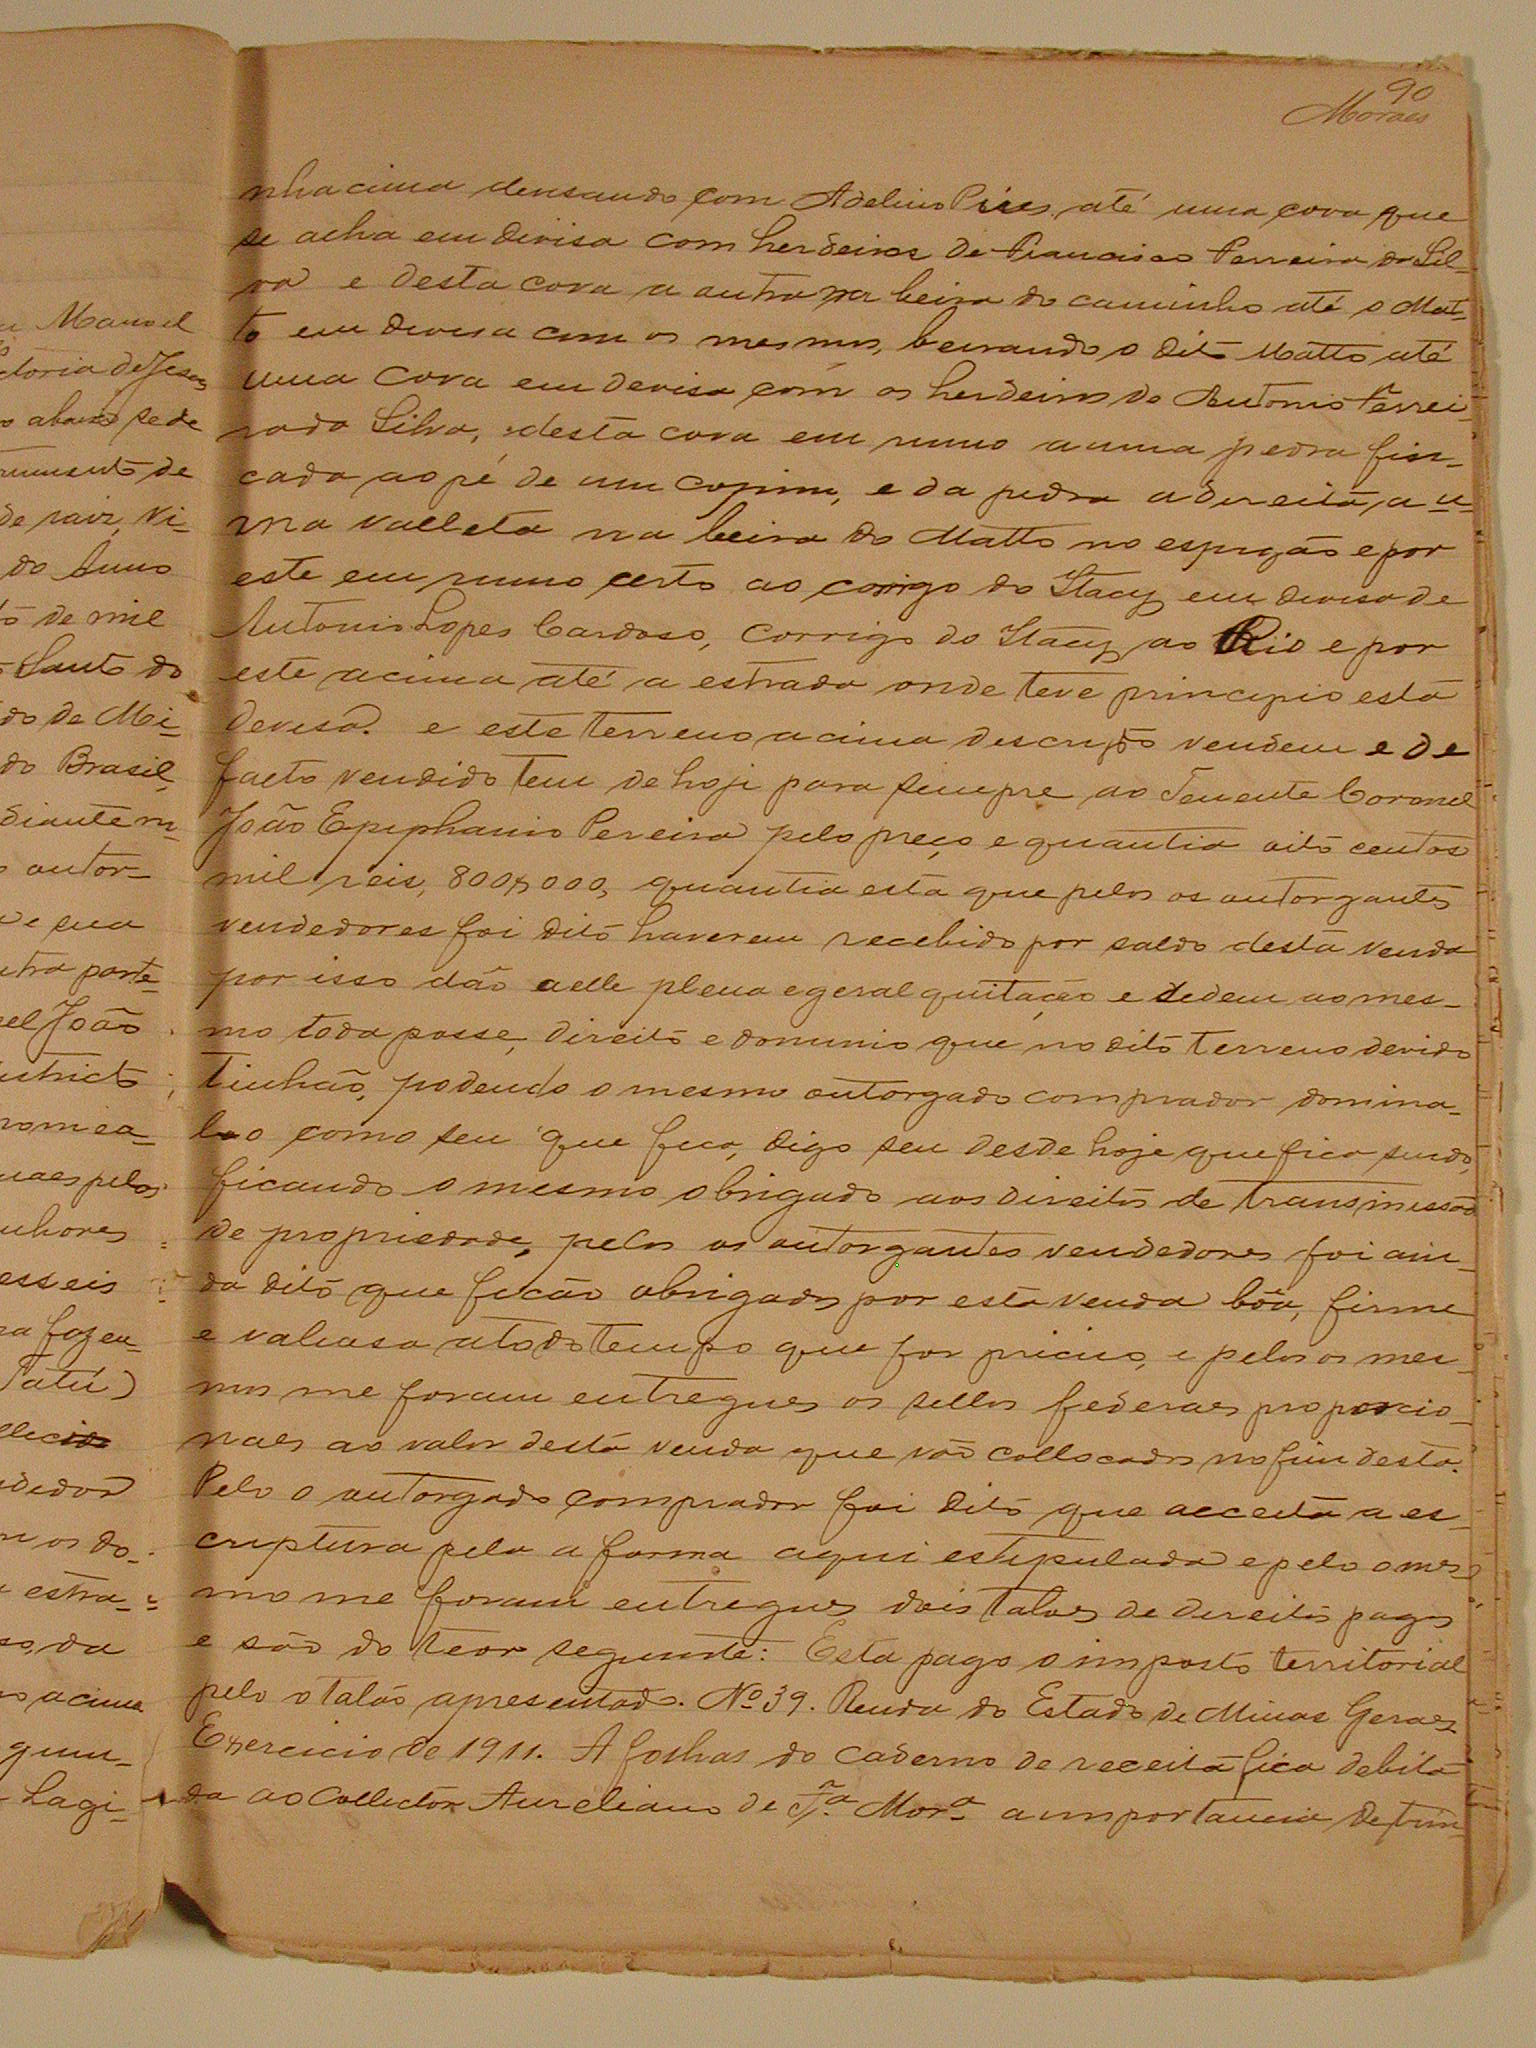 Manoel
ctoria de Jesus
o abaixo se de
rumento de
de raiz, Vi-
do Anno
to de mil
Santo do
do de Mi-
do Brasil,
diante m
o autor-
e sua
utra parte-
el João
istricto
nomea-
uaes pelos
nhores
esseis
ra fazen-
Tatú)
llecido
dedor
m os do-
estra-
so, da
o acima
guin-
Lagi-
90
Moraes
nha cima devisando com Adelino Pires, até uma cova que
se acha em divisa com herdeiros de Francisco Ferreira da Sil-
va e desta cova a outra na beira do caminho até o Mat-
to em devisa com os mesmos, beirando o dito Matto até
uma cova em devisa com os herdeiros de Antonio Ferrei-
ra da Silva, desta cova em rumo a uma pedra fin-
cada ao pé de um cupim, e da pedra a direita, a u-
ma valleta na beira do Matto no espigão e por
este em rumo certo ao corrigo do Itacy em devisa de
Antonio Lopes Cardoso, corrigo do Itacy ao Rio e por
este acima até a estrada onde teve principio esta
devisa. e este terreno acima descripto vendem e de
facto vendido tem de hoje para sempre ao Tenente Coronel
João Epiphanio Pereira pelo preço e quantia oito centos
mil reis, 800$000, quantia esta que pelos os outorgantes
vendedores foi dito haverem recebido por saldo desta venda
por isso dão a elle plena e geral quitação e cedem ao mes-
mo toda posse, direito e dominio que no dito terreno devido
tinhão, podendo o mesmo outorgado comprador domina-
l-o como seu que fica, digo seu desde hoje que fica sendo,
ficando o mesmo obrigado aos direitos de transmissão
de propriedade, pelos os outorgantes vendedores foi ain-
da dito que ficão obrigados por esta venda bôa, firme
e valiosa a todo tempo que for preciso, e pelos os mes-
mos me foram entregues os sellos federaes proporcio-
naes ao valor desta venda que vão collocados no fim desta.
Pelo o outorgado comprador foi dito que acceita a es-
criptura pela a forma aqui estipulada e pelo o mes-
mo me foram entregues dois talões de direitos pagos
e são do teor seguinte: Esta pago o imposto territorial
pelo o talão apresentado. Nº 39. Renda do Estado de Minas Geraes
Exercicio de 1911. A folhas do caderno de receita fica debita
da ao Collector Aureliano de Fª Morª a importancia de trin-